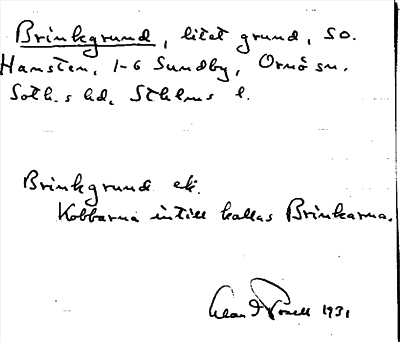 Brinkgrund, litet grund, SO.
Hamsten, 1-6 Sundby, Ornö sn.
Soth.s hd, Sthlms l.
Brinkgrund ek.
Kobbarna intill kallas Brinkarna.
1931